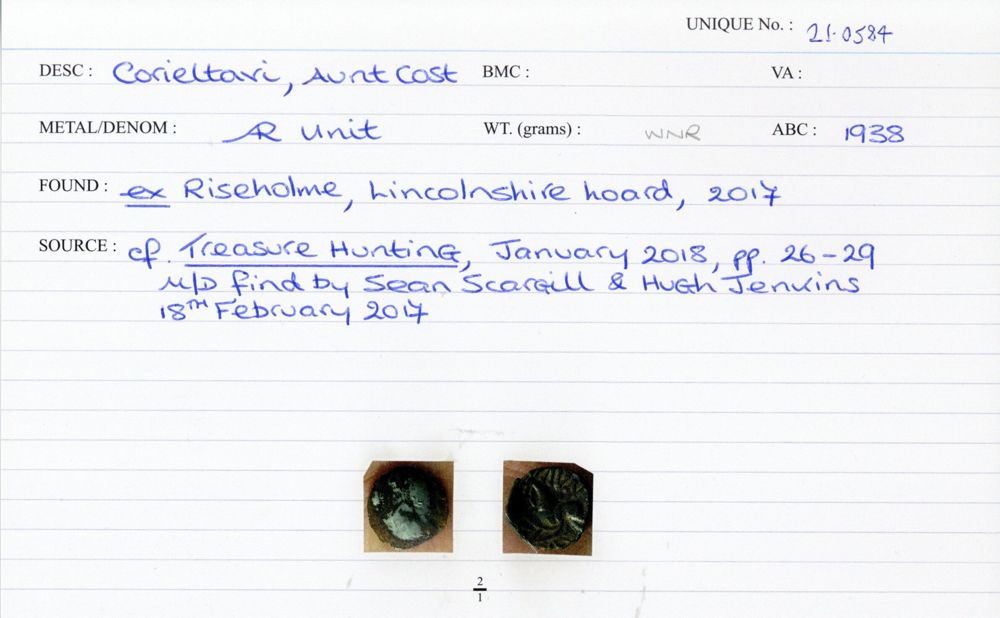 UNIQUE No. : 21.0584
DESC : Corieltavi, Aunt Cost BMC : VA :
METAL/DENOM : AR Unit WT. (grams) : WNR ABC : 1938
FOUND : ex Riseholme, Lincolnshire hoard, 2017
SOURCE : cf. Treasure Hunting, January 2018, pp. 26-29
M/D find by Sean Scargill & Hugh Jenkins
18TH February 2017
2
1